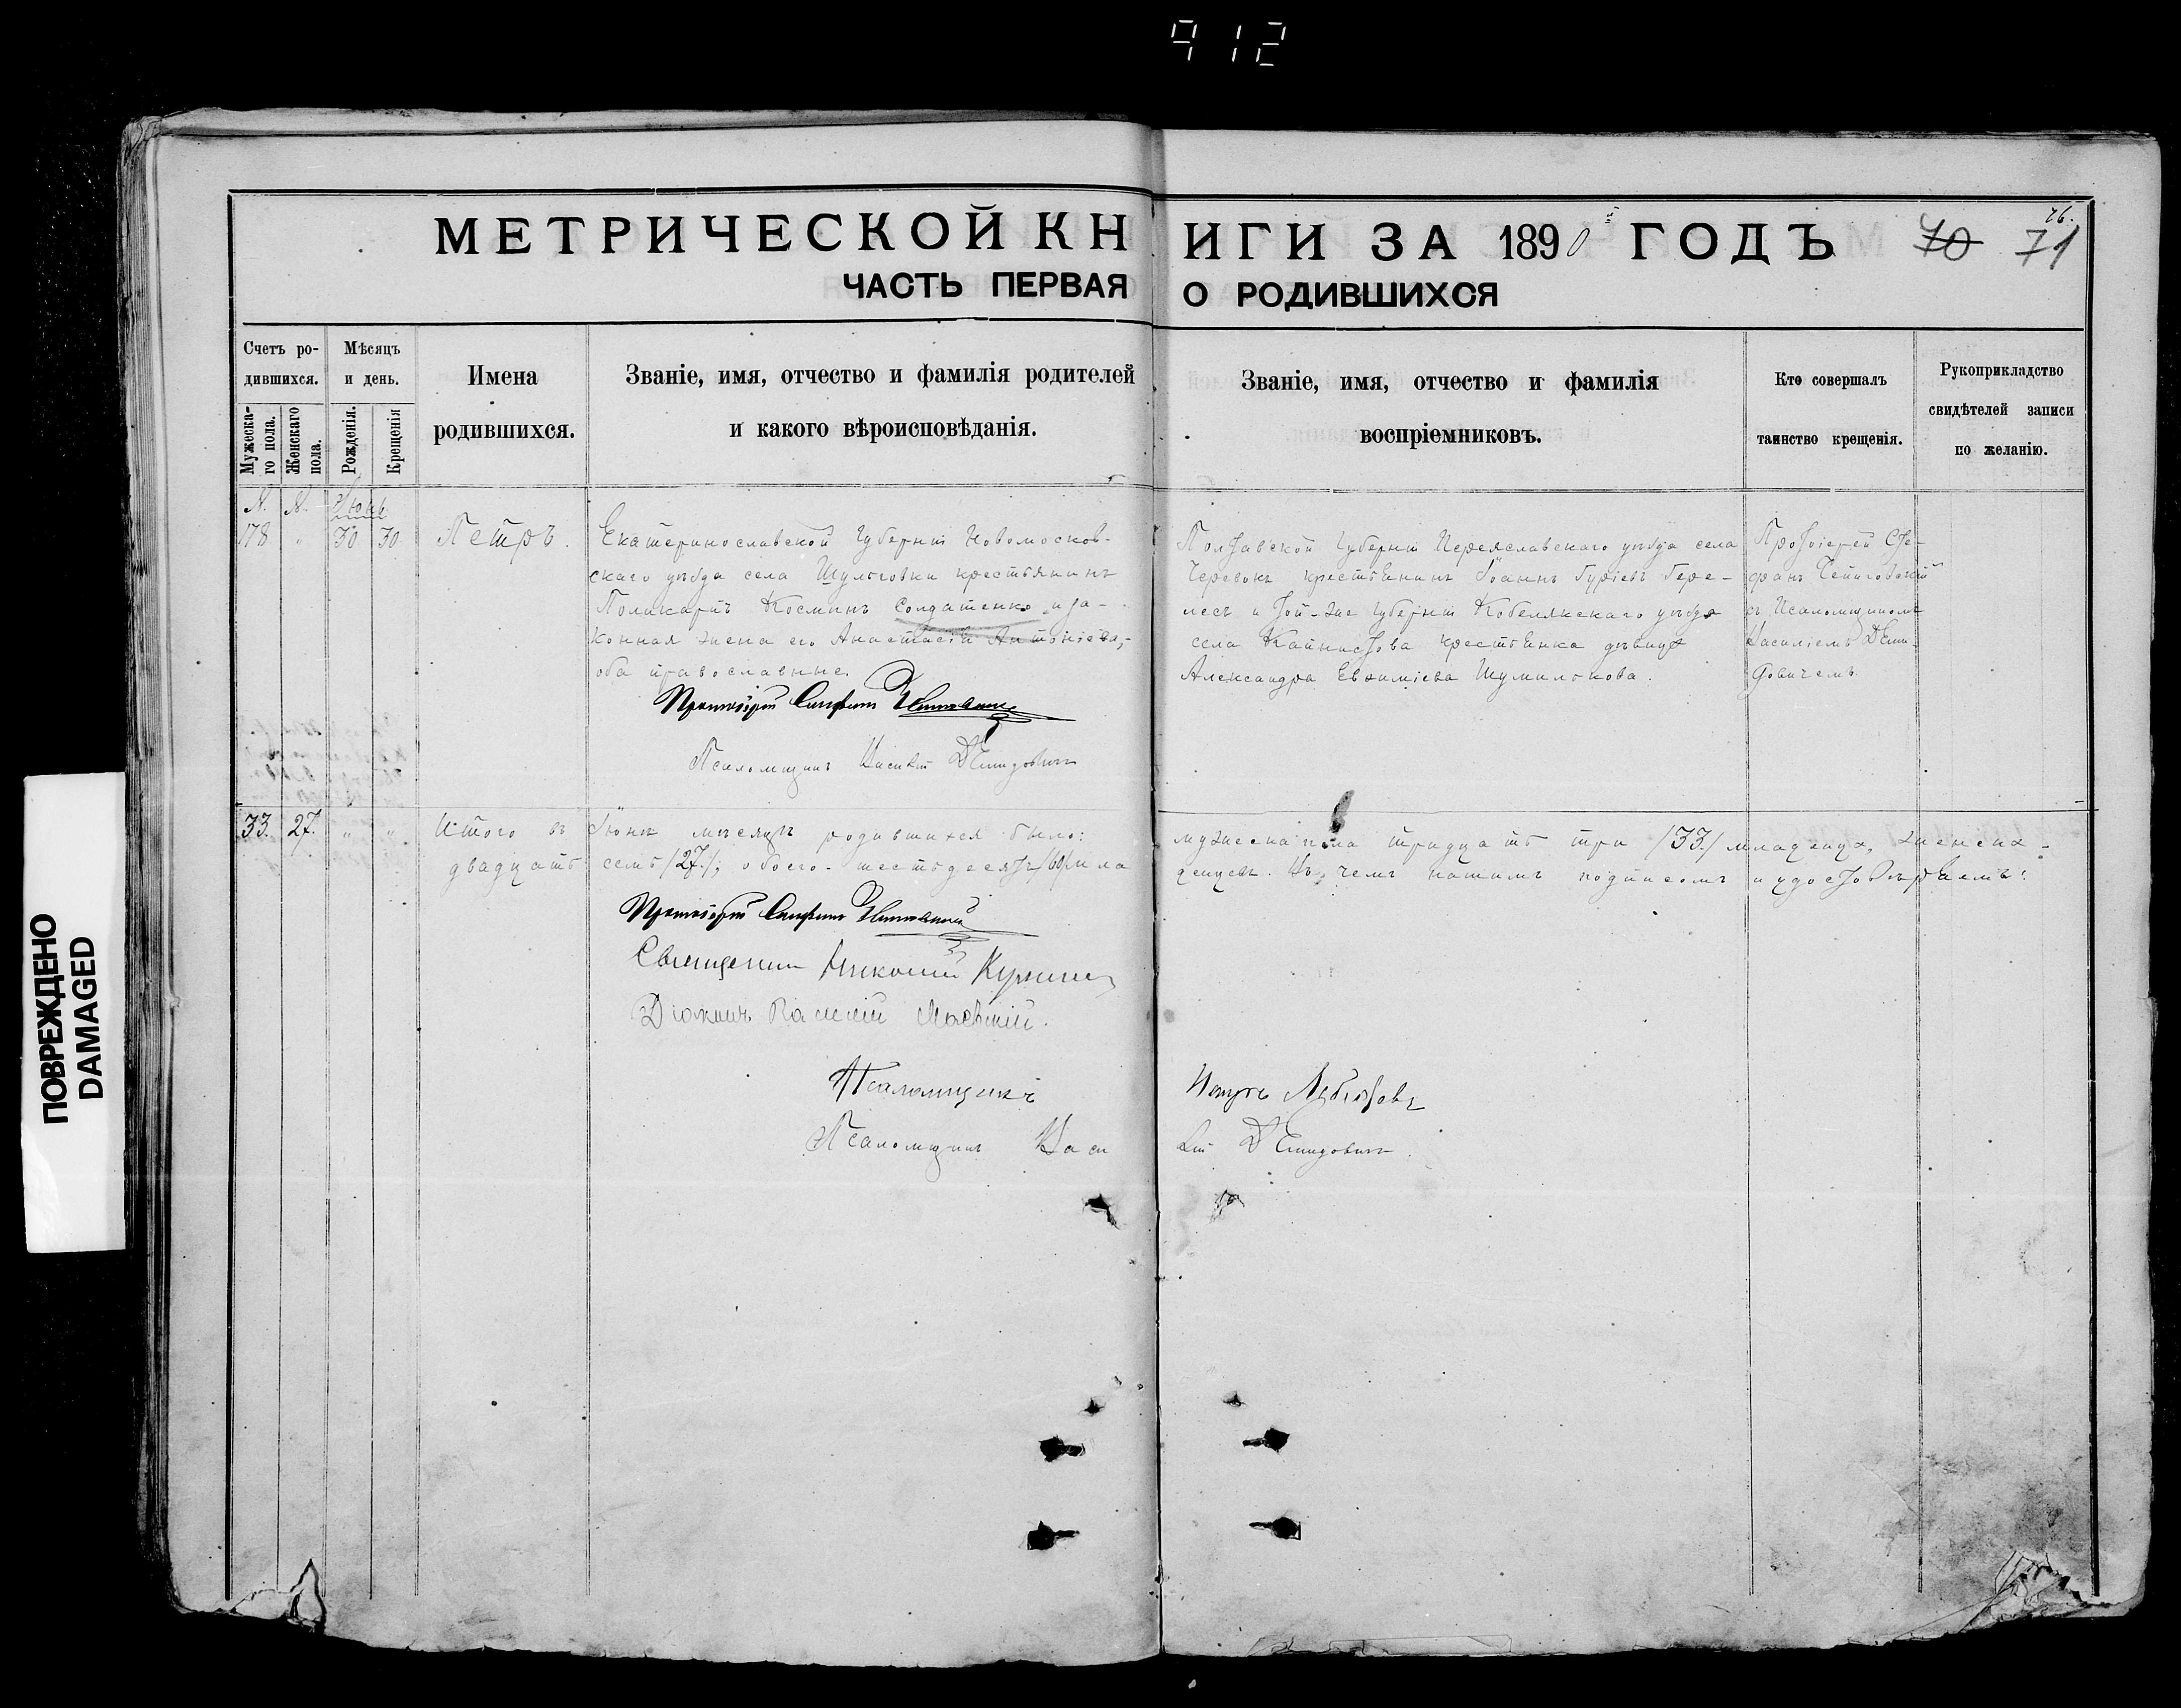 912
МЕТРИЧЕСКОЙ КНИГИ ЗА 1890 ГОДЪ
76.
70 71
ЧАСТЬ ПЕРВАЯ О РОДИВШИХСЯ
Счетъ ро-
дившихся.
Мужеска-
го пола.
Женскаго
пола.
Мѣсяцъ
и день.
Рожденія.
Крещенія
Имена
родившихся.
Званіе, имя, отчество и фамилія родителей
и какого вѣроисповѣданія.
Званіе, имя, отчество и фамилія
воспріемниковъ.
Кто совершалъ
таинство крещенія.
Рукоприкладство
свидѣтелей записи
по желанію.
N. N. Іюнь
178 " 30 30
Петръ.
Екатеринославской губерніи Новомосков-
скаго уѣзда села Шульговки крестьянинъ
Поликарпъ Косминъ Солдатенко и за-
конная жена его Анастасія Антоніева,-
оба православные.
Протоіерей Стефанъ
Псаломщикъ Василій Демидовичъ
Полтавской губерніи Переяславскаго уѣзда села
крестьянинъ Іоаннъ Гуріевъ Бере-
лесъ и той-же губерніи Кобелякскаго уѣзда
села крестьянка дѣвица
Александра Евѳиміева
Протоіерей Сте-
фанъ
съ Псаломщикомъ
Василіемъ Деми-
довичемъ.
33. 27. " "
Итого въ Іюнѣ мѣсяцѣ родившихся было: мужеска пола тридцать три /33/ младенца, женска -
двадцать семь /27/; обоего - шестьдесятъ /60/ младенцевъ. Въ чемъ нашимъ подписомъ и удостовѣряемъ:
Протоіерей Стефанъ
Священникъ Николай
Діаконъ Василій
Псаломщикъ Петръ
Псаломщикъ Василій Демидовичъ.
ПОВРЕЖДЕНО
DAMAGED